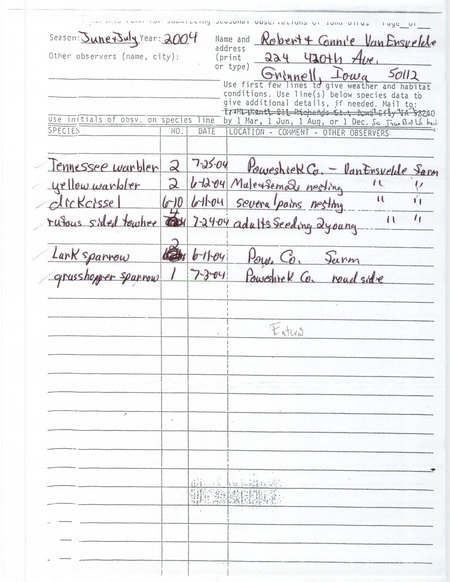 Season: June+July Year: 2004
Name and address (print or type)
Robert & Connie VanErsvelde
224 420th Ave.
Grinnell, Iowa 50112
Other observers (name, city):
Use first few lines to give weather and habitat
conditions. Use line(s) below species data to
give additional details, if needed. Mail to:
use initials of obsv. on species line
by 1 Mar, 1 Jun, 1 Aug, or 1 Dec.
SPECIES NO. DATE LOCATION - COMMENT - OTHER OBSERVERS
Tennessee warbler 2 7-25-04 Poweshiek Co. - VanErsvelde Farm
yellow warbler 2 6-12-04 Male+Female nesting " "
dickcissel 6-10 6-11-04 several pairs nesting " "
rufous sided towhee 4 7-24-04 adults feeding 2 young " "
Lark sparrow 2 6-11-04 Pow. Co. Farm
grasshopper sparrow 1 7-3-04 Poweshiek Co. road side